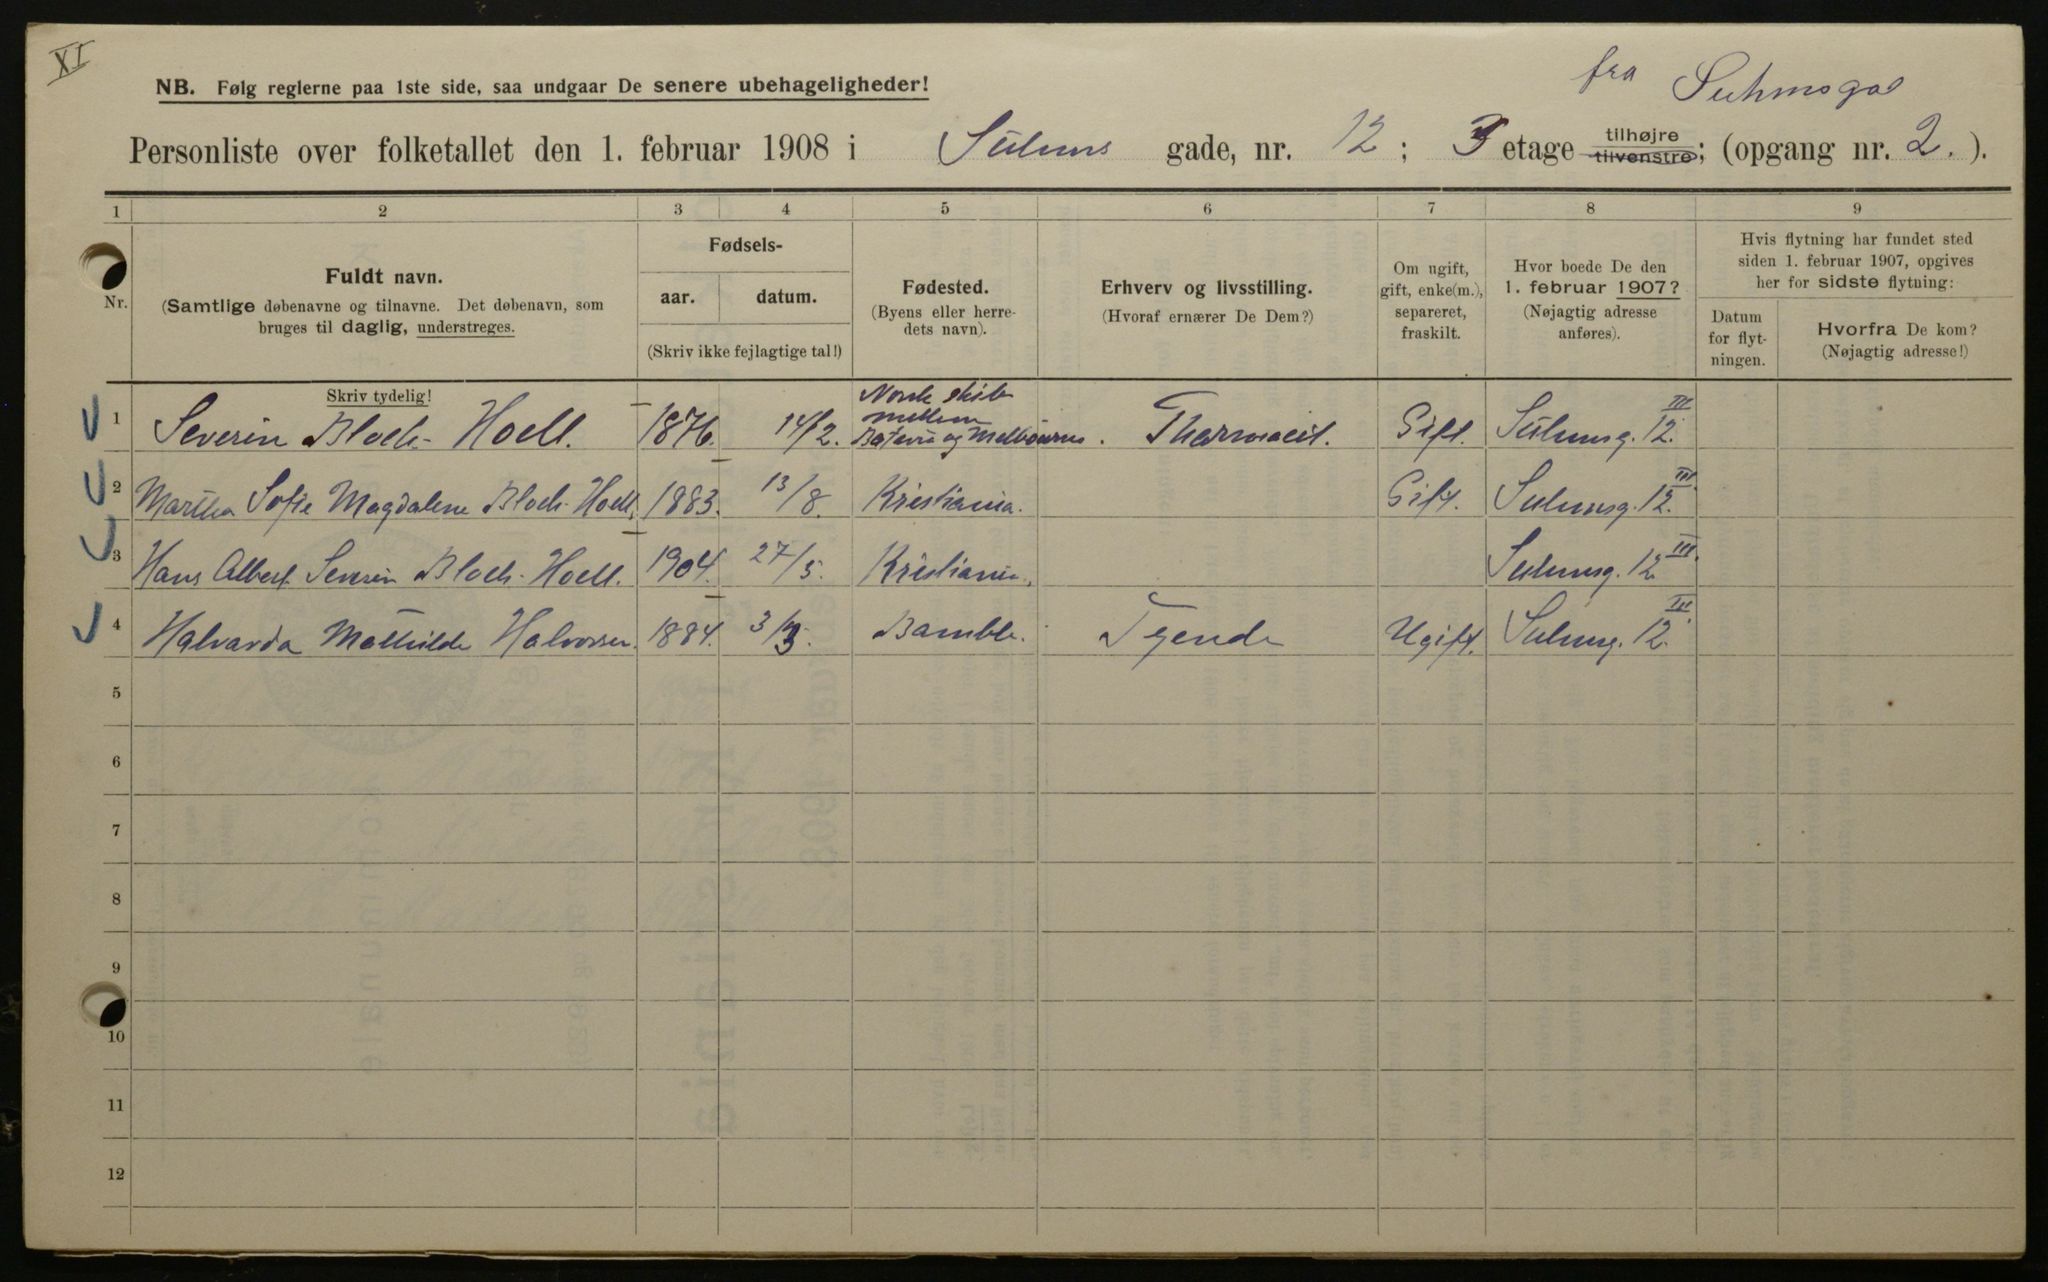 XI
NB. Følg reglerne paa 1ste side, saa undgaar De senere ubehageligheder!
fra Suhmsga
Personliste over folketallet den 1. februar 1908 i Suhms gade, nr. 12; 3 etage tilhøjre tilvenstre; (opgang nr. 2.).
1 2 3 4 5 6 7 8 9
Nr.
Fuldt navn.
(Samtlige døbenavne og tilnavne. Det døbenavn, som
bruges til daglig, understreges.
Skriv tydelig!
Fødsels-
aar. datum.
(Skriv ikke fejlagtige tal!)
Fødested.
(Byens eller herre-
dets navn).
Erhverv og livsstilling.
(Hvoraf ernærer De Dem?)
Om ugift,
gift, enke(m.),
separeret,
fraskilt.
Hvor boede De den
1. februar 1907?
(Nøjagtig adresse
anføres).
Hvis flytning har fundet sted
siden 1. februar 1907, opgives
her for sidste flytning:
Datum
for flyt-
ningen.
Hvorfra De kom?
(Nøjagtig adresse!)
1 Severin Bloch-Hoell. 1876. 14/2. Norsk skib mellem Batavia og Melbourne. Pharmaceit. Gift. Suhmsg. 12 III
2 Martha Sofie Magdalene Bloch-Hoell. 1883. 13/8. Kristiania. Gift. Suhmsg. 12 III
3 Hans Albert Severin Bloch-Hoell. 1904. 27/5. Kristiania. Suhmsg. 12 III
4 Halvarda Mathilde Halvorsen. 1884. 3/3. Bamble. Tyende Ugift. Suhmsg. 12 III
5
6
7
8
9
10
11
12